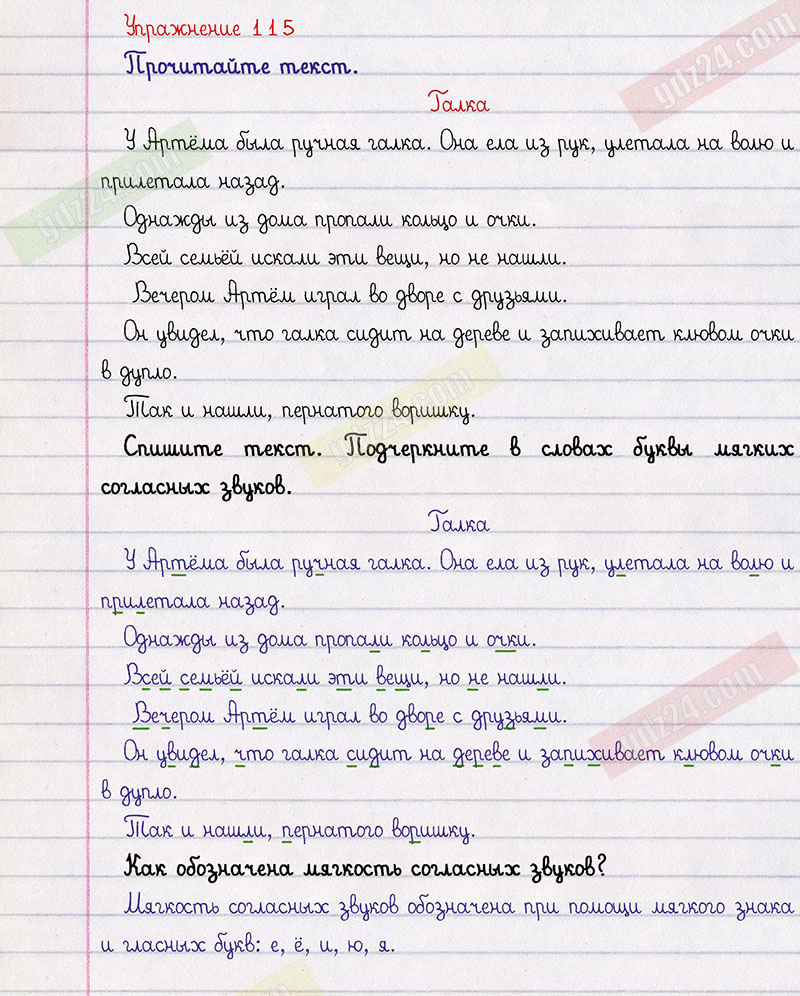 Упражнение 115
Прочитайте текст.
Галка
У Артёма была ручная галка. Она ела из рук, улетала на волю и
прилетала назад.
Однажды из дома пропали кольцо и очки.
Всей семьёй искали эти вещи, но не нашли.
Вечером Артём играл во дворе с друзьями.
Он увидел, что галка сидит на дереве и запихивает клювом очки
в дупло.
Так и нашли, пернатого воришку.
Спишите текст. Подчеркните в словах буквы мягких
согласных звуков.
Галка
У Артёма была ручная галка. Она ела из рук, улетала на волю и
прилетала назад.
Однажды из дома пропали кольцо и очки.
Всей семьёй искали эти вещи, но не нашли.
Вечером Артём играл во дворе с друзьями.
Он увидел, что галка сидит на дереве и запихивает клювом очки
в дупло.
Так и нашли, пернатого воришку.
Как обозначена мягкость согласных звуков?
Мягкость согласных звуков обозначена при помощи мягкого знака
и гласных букв: е, ё, и, ю, я.
gdz24.com
gdz24.com
gdz24.com
gdz24.com